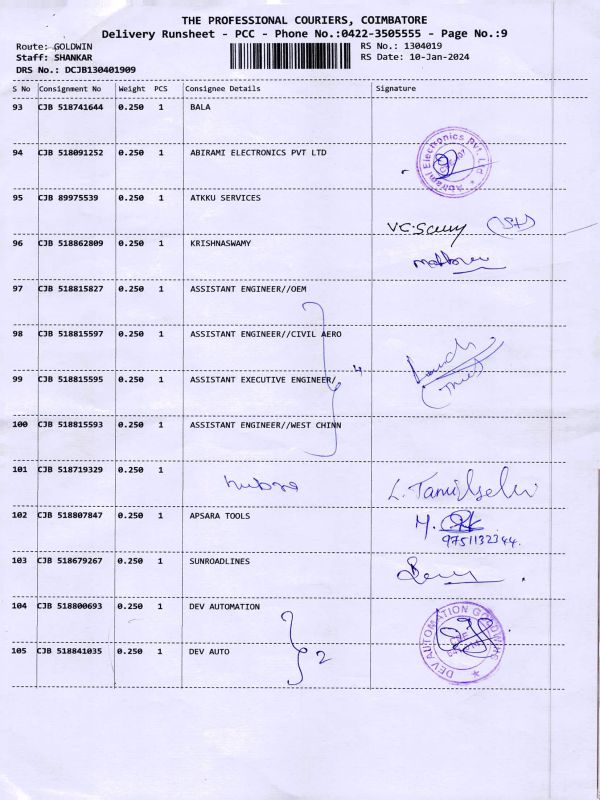 THE PROFESSIONAL COURIERS, COIMBATORE
Delivery Runsheet - PCC - Phone No.:0422-3505555 - Page No.:9
Route: GOLDWIN RS No.: 1304019
Staff: SHANKAR RS Date: 10-Jan-2024
DRS No.: DCJB130401909
S No Consignment No Weight PCS Consignee Details Signature
93 CJB 518741644 0.250 1 BALA
94 CJB 518091252 0.250 1 ABIRAMI ELECTRONICS PVT LTD
Abirami Electronics Pvt. Ltd
95 CJB 89975539 0.250 1 ATKKU SERVICES
96 CJB 518862809 0.250 1 KRISHNASWAMY
97 CJB 518815827 0.250 1 ASSISTANT ENGINEER//OEM
98 CJB 518815597 0.250 1 ASSISTANT ENGINEER//CIVIL AERO
99 CJB 518815595 0.250 1 ASSISTANT EXECUTIVE ENGINEER/ 4
100 CJB 518815593 0.250 1 ASSISTANT ENGINEER//WEST CHINN
101 CJB 518719329 0.250 1 L. Tamilselvi
102 CJB 518807847 0.250 1 APSARA TOOLS
9751132344.
103 CJB 518679267 0.250 1 SUNROADLINES
104 CJB 518800693 0.250 1 DEV AUTOMATION
DEV AUTOMATION GOLDWINS
105 CJB 518841035 0.250 1 DEV AUTO 2